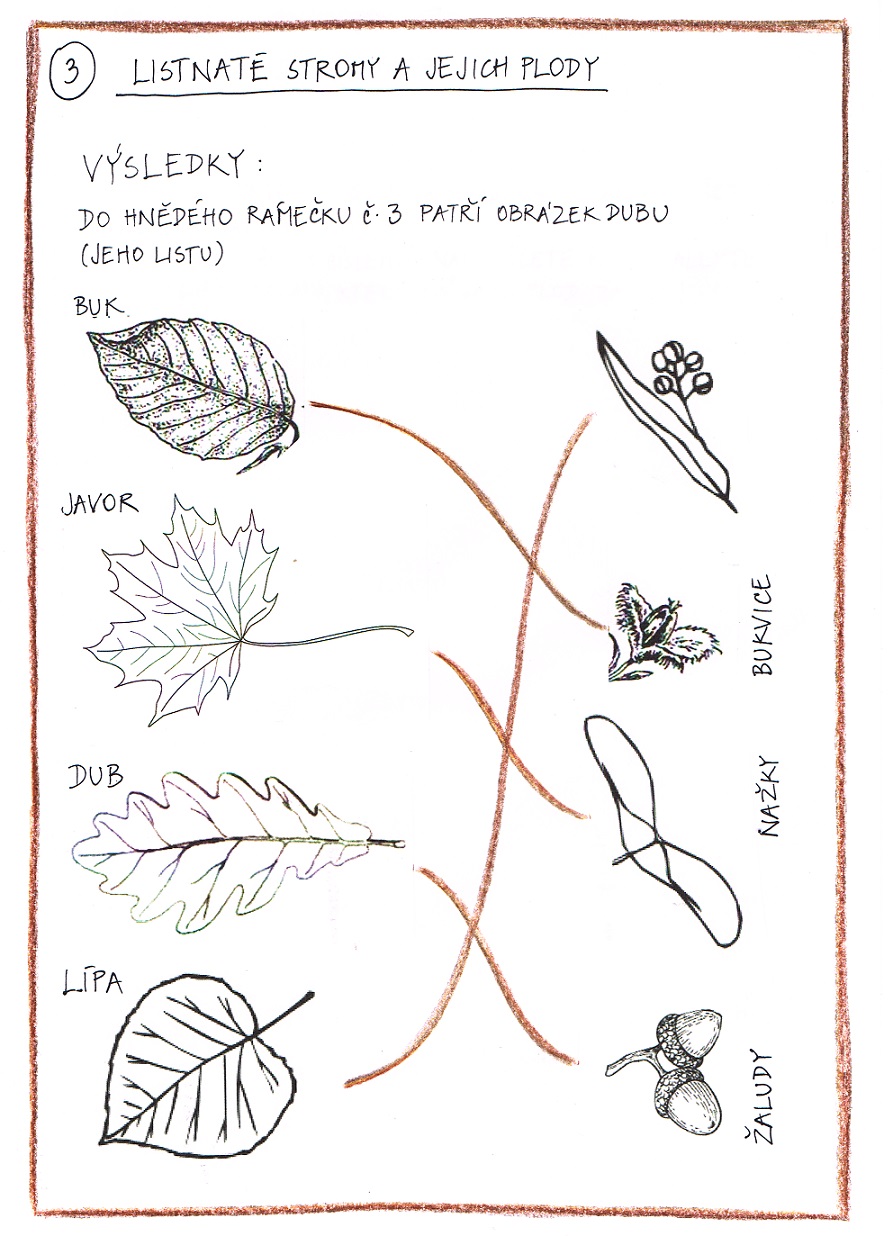 3 LISTNATÉ STROMY A JEJICH PLODY
VÝSLEDKY :
DO HNĚDÉHO RÁMEČKU Č. 3 PATŘÍ OBRÁZEK DUBU
(JEHO LISTU)
BUK
JAVOR
BUKVICE
DUB
NAŽKY
LÍPA
ŽALUDY